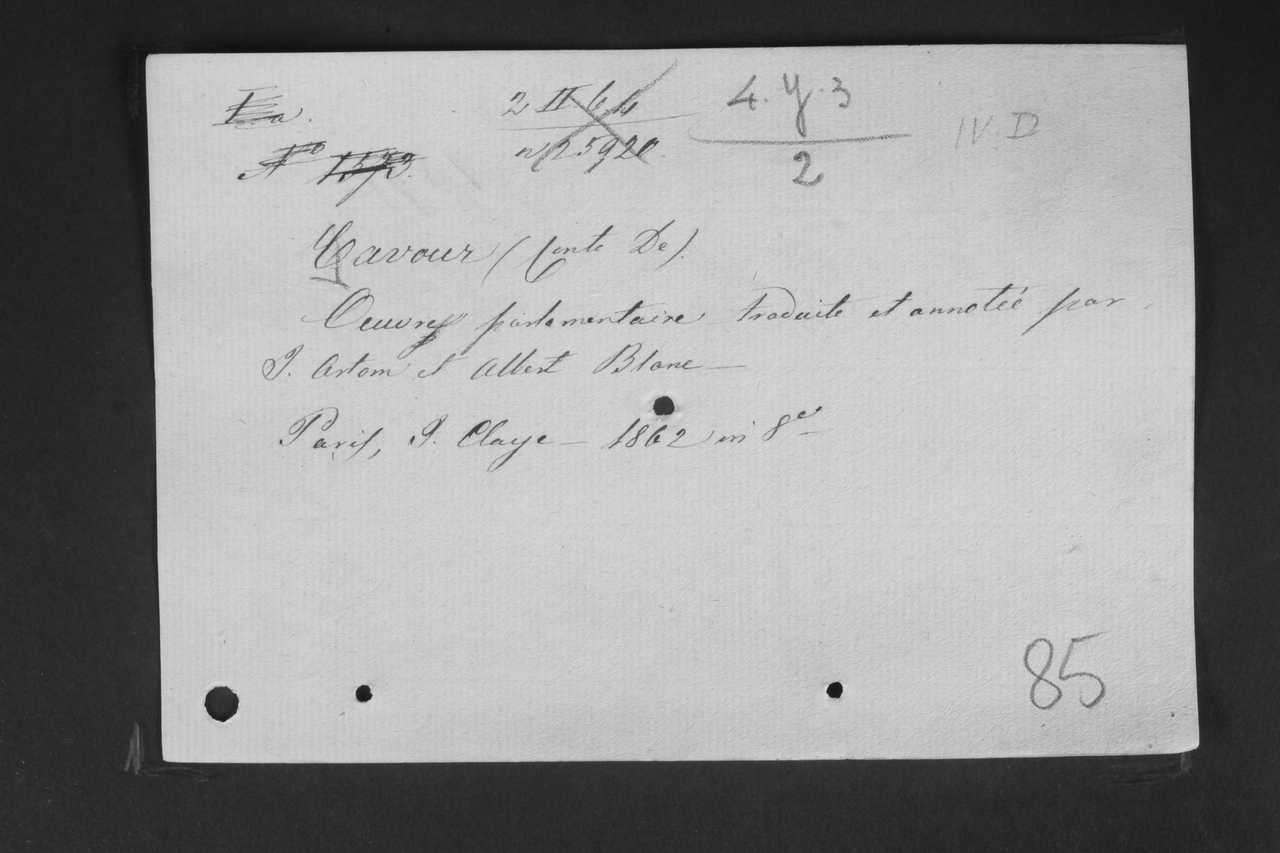 E a.
N° 1573.
2 II 64
n/25920.
4. y. 3
2
IV. D
Cavour (Conte De).
Oeuvres parlementaire traduite et annotée par
I. Artom et Albert Blanc —
Paris, I. Claye — 1862 in 8°
85